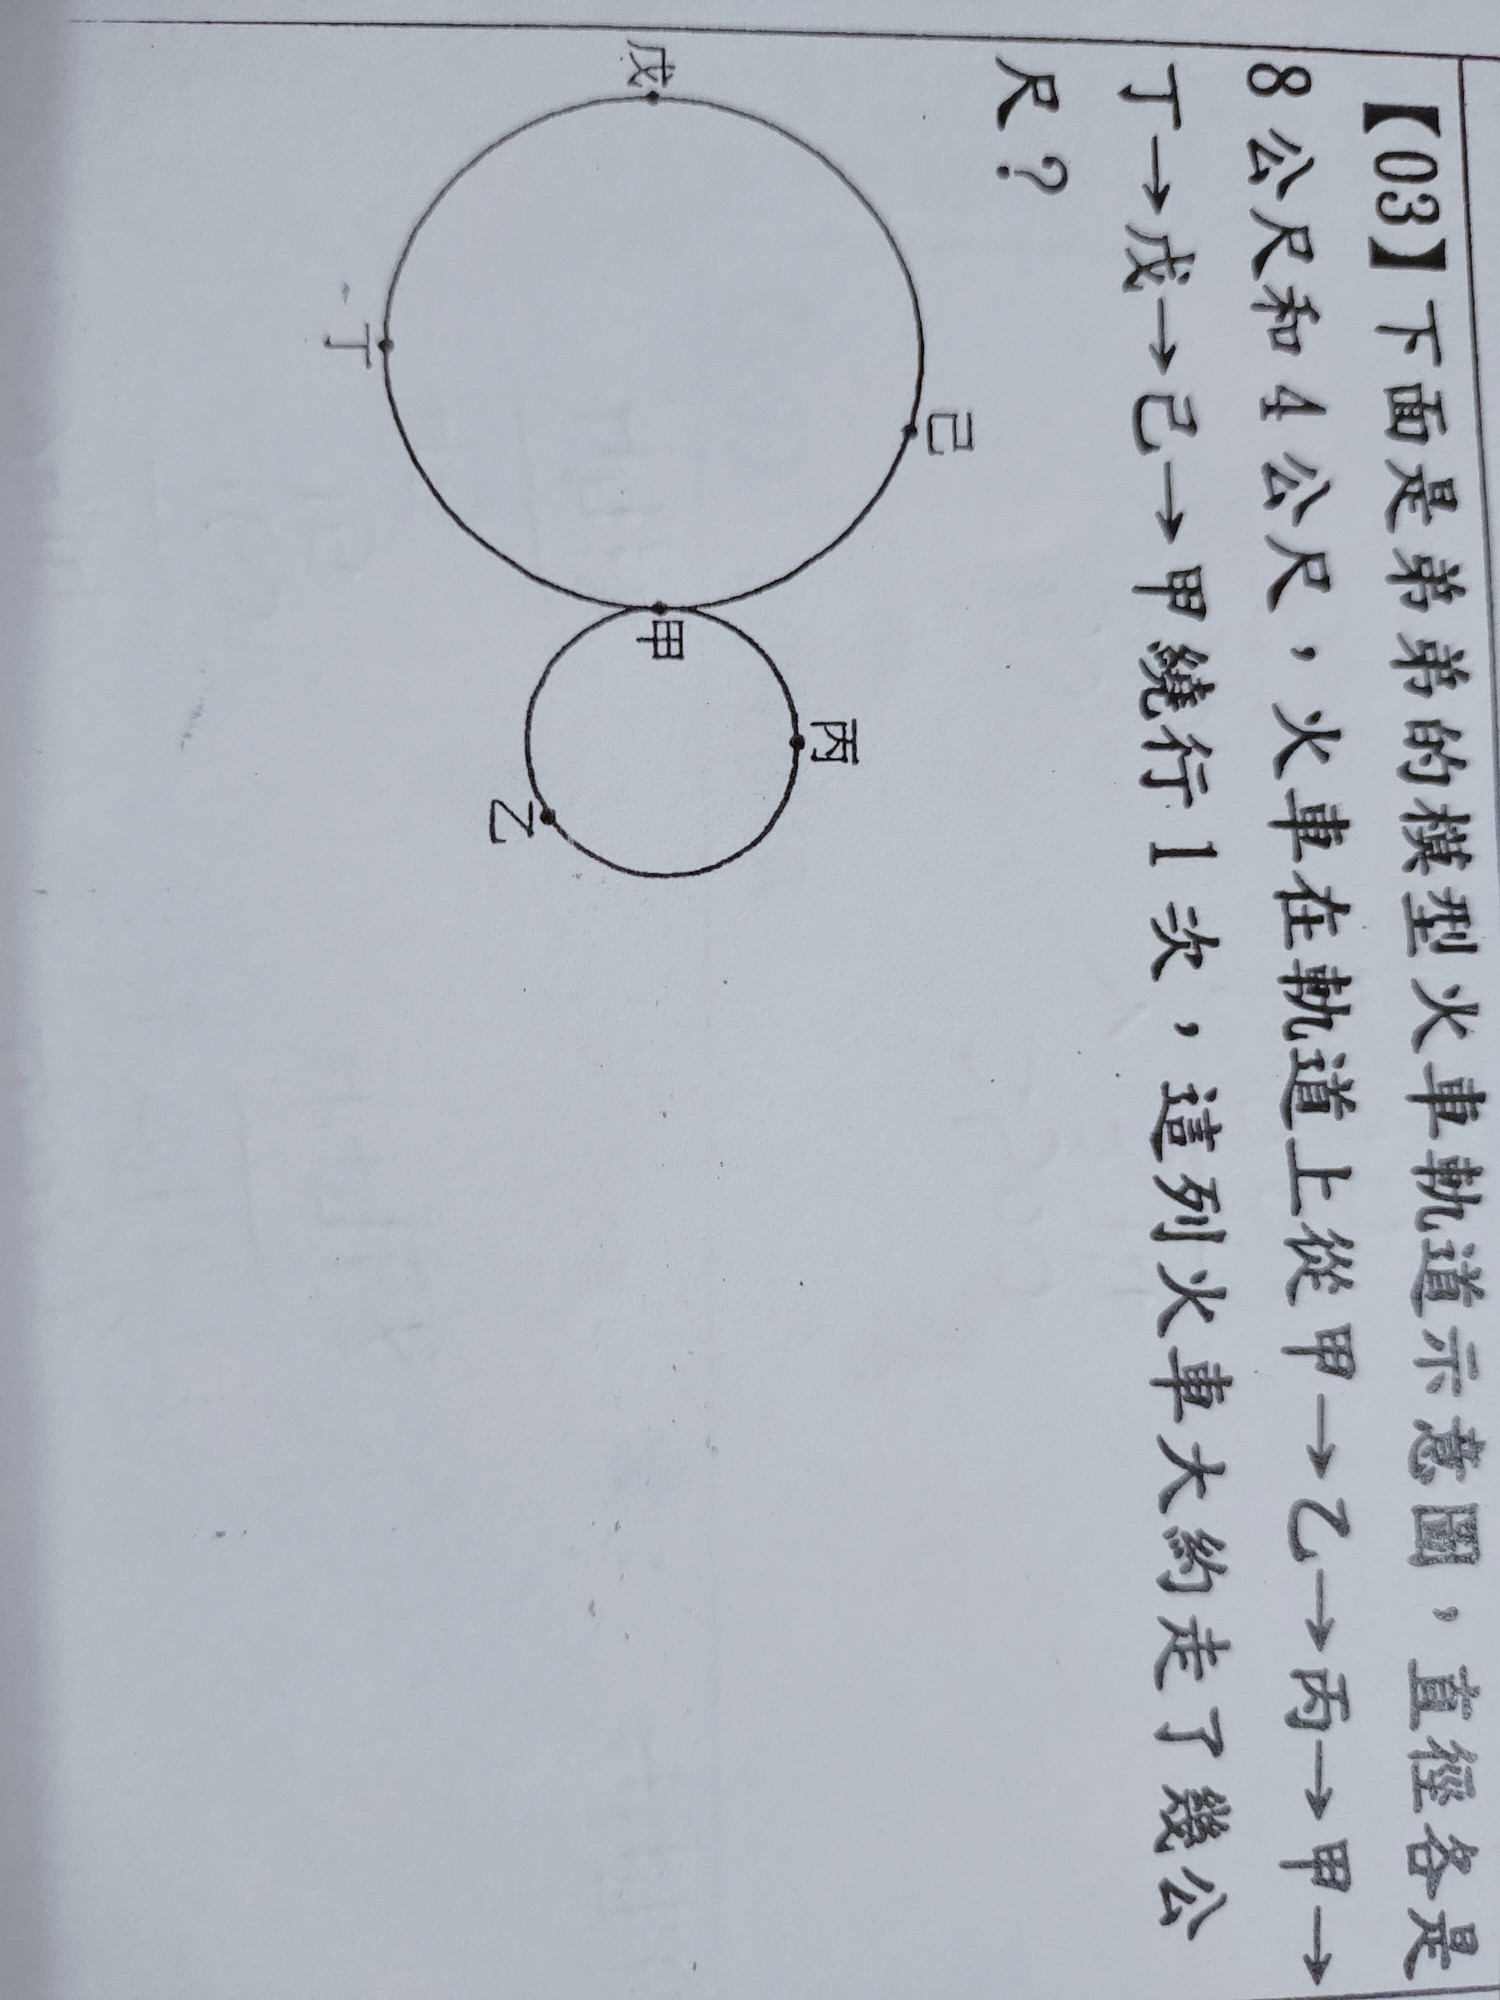 【03】下面是弟弟的模型火車軌道示意圖，直徑各是
8公尺和4公尺，火車在軌道上從甲→乙→丙→甲→
丁→戊→己→甲繞行1次，這列火車大約走了幾公
尺？
己
丙
戊
甲
乙
丁